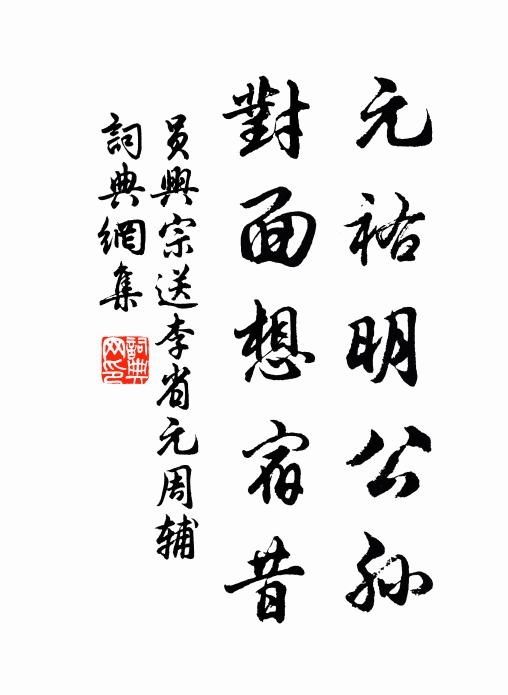 元祐明公孫
對面想宿昔
員興宗送李省元周輔
詞典網集
詞典网印